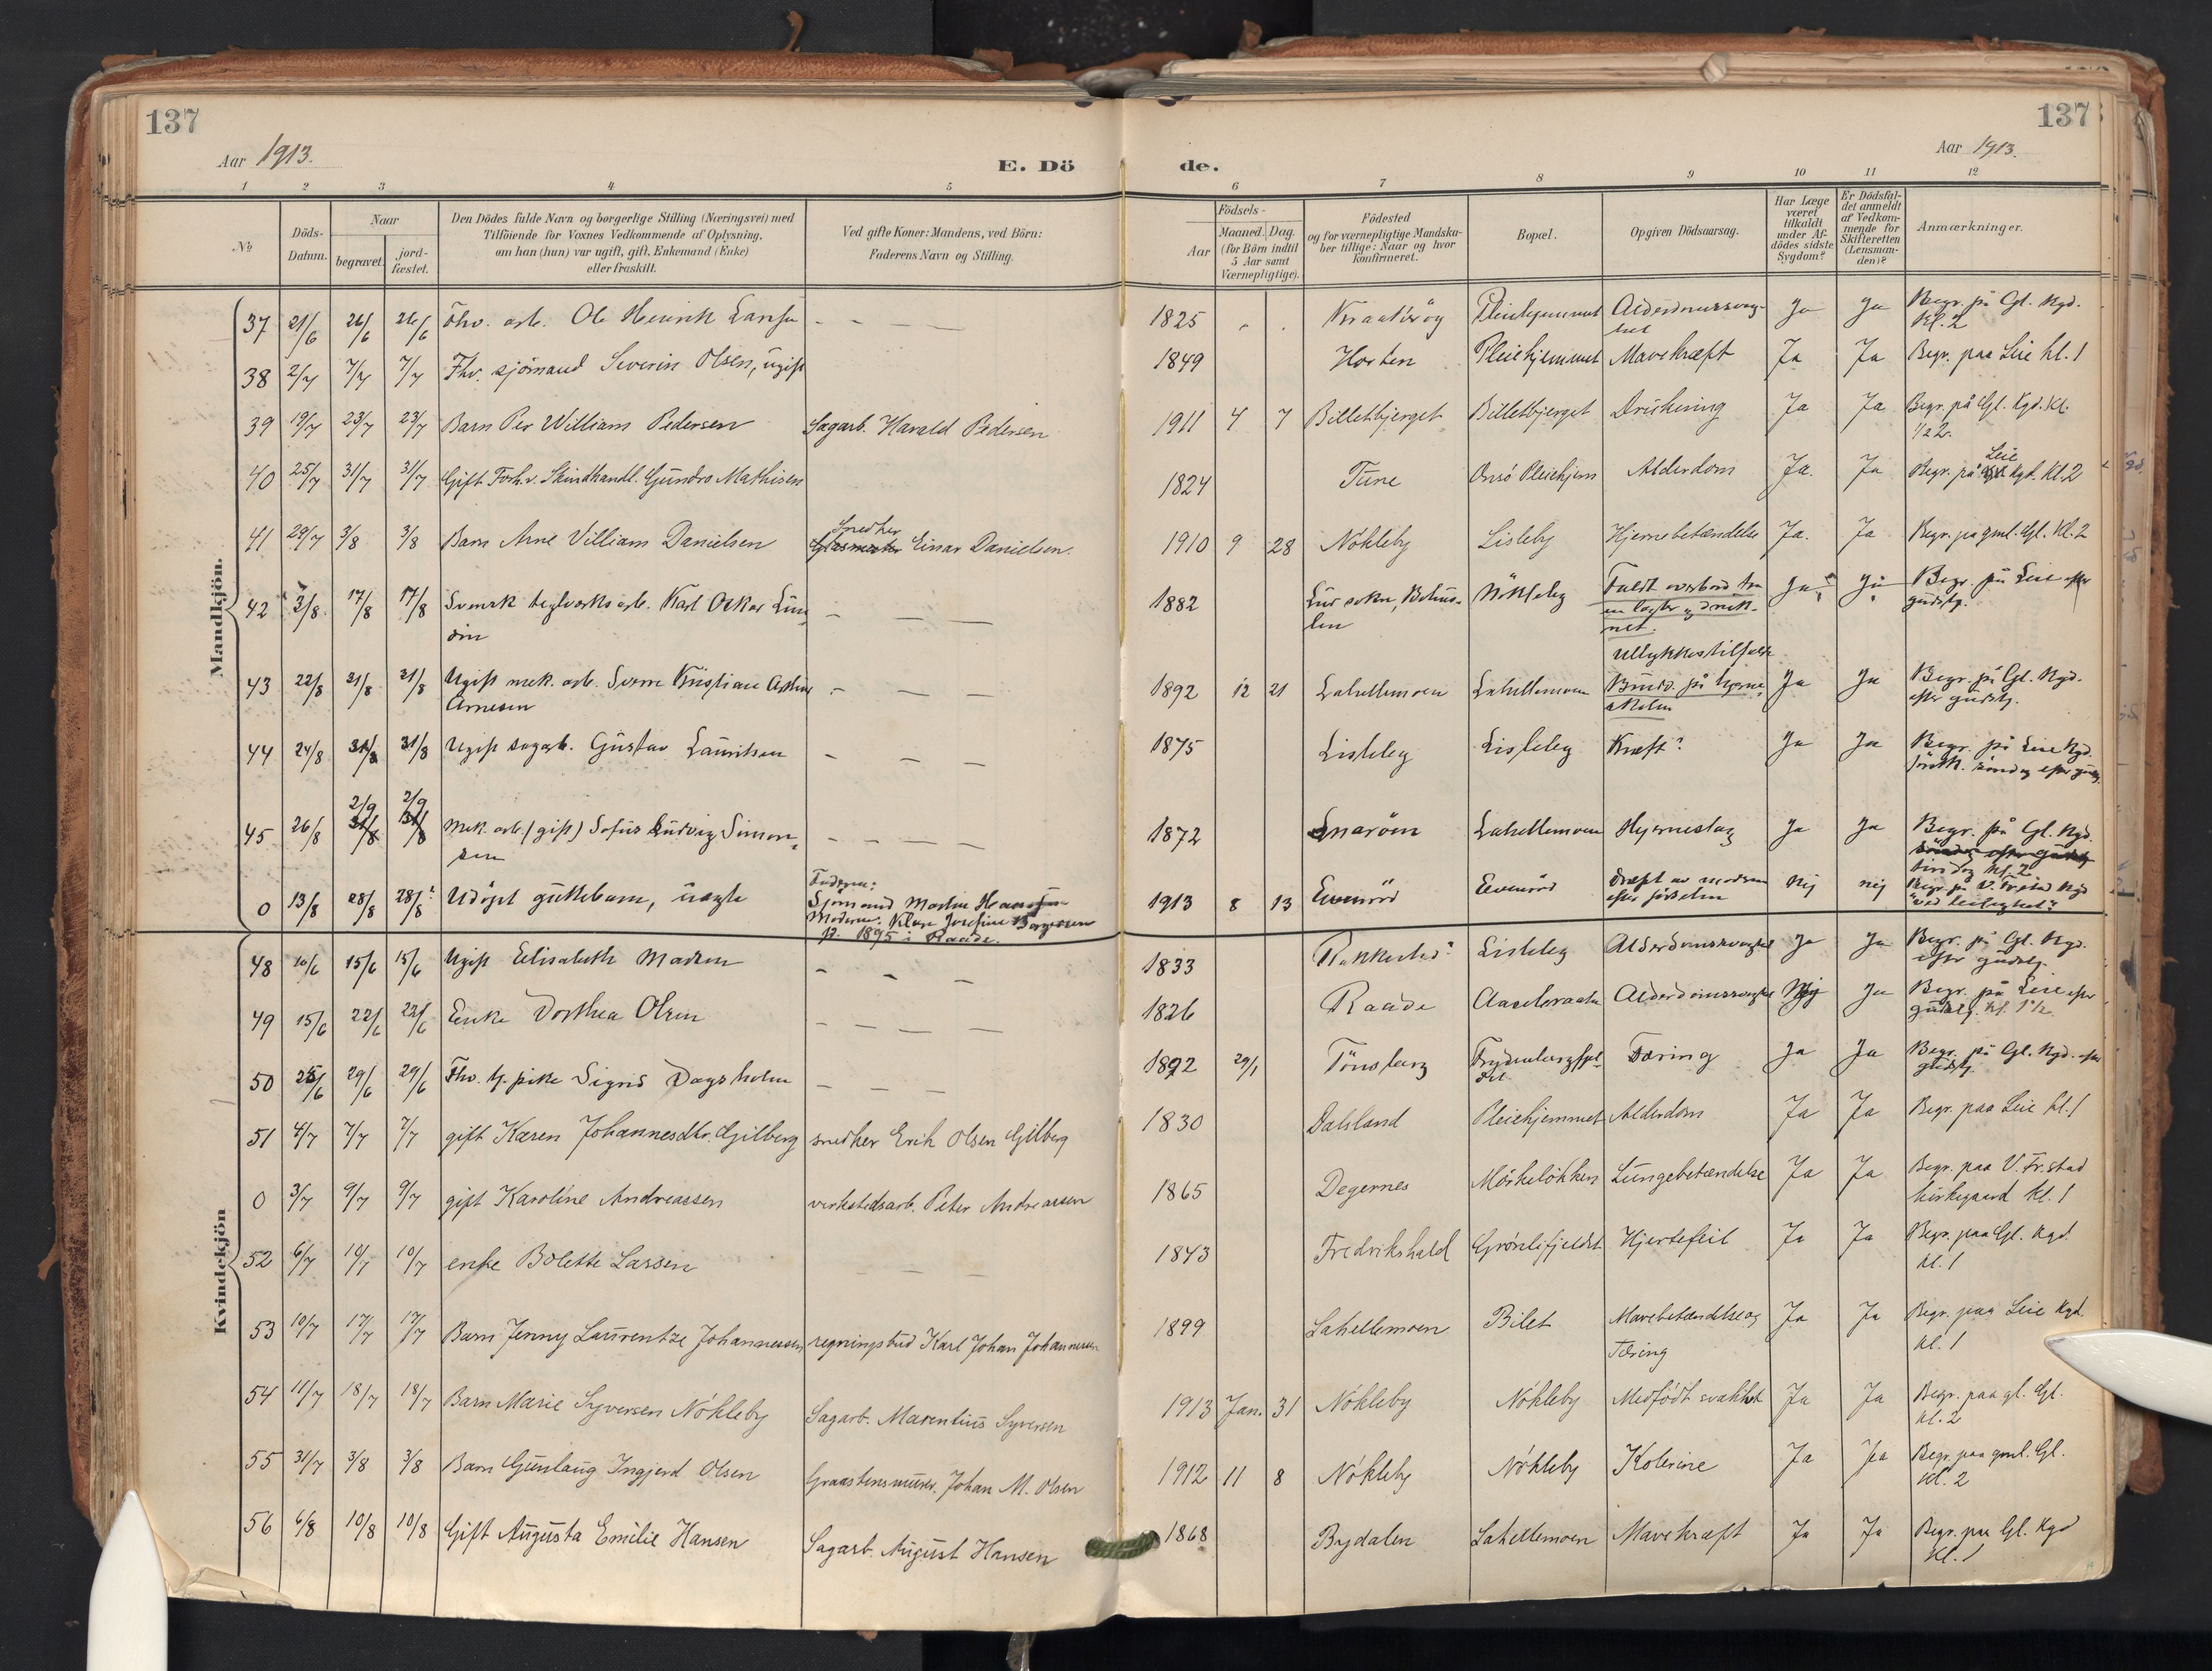 137
137
Aar 1913.
Aar 1913.
E. Dö de.
1 2 3 4 5 6 7 8 9 10 11 12
No
Döds-Datum.
Naar
begravet.
jord-fæstet.
Den Dödes fulde Navn og borgerlige Stilling (Næringsvei) med
Tilföiende for Voxnes Vedkommende af Oplysning,
om han (hun) var ugift, gift, Enkemand (Enke)
eller fraskilt.
Ved gifte Koner: Mandens, ved Börn:
Faderens Navn og Stilling.
Födsels-
Aar
Maaned. Dag.
(for Börn indtil
5 Aar samt
Værnepligtige).
Födested
og for værnepligtige Mandska-
ber tillige: Naar og hvor
konfirmeret.
Bopæl.
Opgiven Dödsaarsag.
Har Læge
været
tilkaldt
under Af-
dödes sidste
Sygdom?
Er Dödsfal-
det anmeldt
af Vedkom-
mende for
Skifteretten
(Lensman-
den)?
Anmærkninger.
Mandkjön.
37 21/6 26/6 26/6 Fhv. arb. Ole Henrik Larsen - - - 1825 Kraakeröy Pleiehjemmet Alderdomssvag-het Ja Ja Begr. på Gl. Kgd. Kl. 2
38 2/7 7/7 7/7 Fhv. sjömand Severin Olsen, ugift 1849 Horten Pleiehjemmet Mavekræft Ja Ja Begr. paa Leie kl. 1
39 19/7 23/7 23/7 Barn Per William Pedersen Sagarb. Harald Pedersen 1911 4 7 Billetbjerget Billetbjerget Drukning Ja Ja Begr. på Gl. Kgd. Kl. 1/2 2.
40 25/7 31/7 31/7 Gift Forh.v. Skindhandl. Gundro Mathisen 1824 Tune Onsö Pleiehjem Alderdom Ja. Ja Begr. på Leie Kgd. Kl. 2
41 29/7 3/8 3/8 Barn Arne Villiam Danielsen Snedker Einar Danielsen. 1910 9 28 Nökleby Lisleby Hjernebetændelse Ja. Ja Begr. på gml. Gl. Kl. 2
42 3/8 17/8 17/8 Svensk teglverksarb. Karl Oskar Lun-din - - - 1882 Lur sokn, Bohus-len Nökleby Faldt overbord fra en lægter og druk-net. Ja Ja Begr. på Leie efter gudstj.
43 22/8 31/8 31/8 Ugift mek. arb. Sverre Kristian Arnesen - - - 1892 12 21 Lahellemoen Lahellemoen Ulykkestilfælde Brud på hjerneskolen Ja Ja Begr. på Gl. Kgd. efter gudstj.
44 24/8 31/8 31/8 Ugift sagarb. Gustav Lauritsen - - - 1875 Lisleby Lisleby Kræft? Ja Ja Begr. på Leie Kgd. söndag efter gudstj.
45 26/8 2/9 2/9 Mek. arb. (gift) Sofus Ludvig Simon-sen - - - 1872 Snaröen Lahellemoen Hjerneslag Ja Ja Begr. på Gl. Kgd. tirsdag kl. 2
0 13/8 28/8 28/8? Udöpt guttebarn, uægte Faderen: Sjömand Martin Hansen Moderen: Klara Josefine Borgersen f. 1895 i Raade. 1913 8 13 Evenröd Evenröd Dræpt av moderen efter födselen Nej nej Begr. på V. Fr.stad Kgd "ved leilighet"
Kvindekjön
48 10/6 15/6 15/6 Ugift Elisabeth Madsen - - - 1833 Rakkestad? Lisleby Alderdomssvaghet Ja Ja Begr. på Gl. Kgd. efter gudstj.
49 15/6 22/6 22/6 Enke Dorthea Olsen - - - - 1826 Raade Alderdomssvaghet Nej Ja Begr. på Leie efter gudstj. kl. 1 1/2
50 25/6 29/6 29/6 Fhv. tj. pike Sigrid Dagsholm - - - 1892 29/1 Tönsberg Tæring Ja Ja Begr. på Gl. Kgd. efter gudstj.
51 4/7 7/7 7/7 gift Karen Johannesdtr. Gilberg snedker Erik Olsen Gilberg 1830 Dalsland Pleiehjemmet Alderdom Ja Ja Begr. paa Leie kl. 1
0 3/7 9/7 9/7 gift Karoline Andreassen verkstedsarb. Peter Andreassen 1865 Degernes Mörkelökken Lungebetændelse Ja Ja Begr. paa V. Fr.stad kirkegaard kl. 1
52 6/7 10/7 10/7 enke Bolette Larsen - - - 1843 Fredrikshald Grönlifjeldet Hjertefeil Ja Ja Begr. paa Gl. Kgd. kl. 1
53 10/7 17/7 17/7 Barn Jenny Laurentze Johannessen regningsbud Karl Johan Johannessen 1899 Lahellemoen Bilet Mavebetændelse og Tæring Ja Ja Begr. paa Leie Kgd. kl. 1
54 11/7 18/7 18/7 Barn Marie Syversen Nökleby Sagarb. Marentius Syversen 1913 Jan. 31 Nökleby Nökleby Medfödt svakhet Ja Ja Begr. paa gl. Gl. kl. 2
55 31/7 3/8 3/8 Barn Gunlaug Ingjerd Olsen Graastensmurer. Johan M. Olsen 1912 11 8 Nökleby Nökleby Kolerine Ja Ja Begr. paa gml. Gl. Kl. 2
56 6/8 10/8 10/8 Gift Augusta Emilie Hansen Sagarb. August Hansen 1868 Brydalen Lahellemoen Mavekræft Ja Ja Begr. paa Gl. Kgd Kl. 1